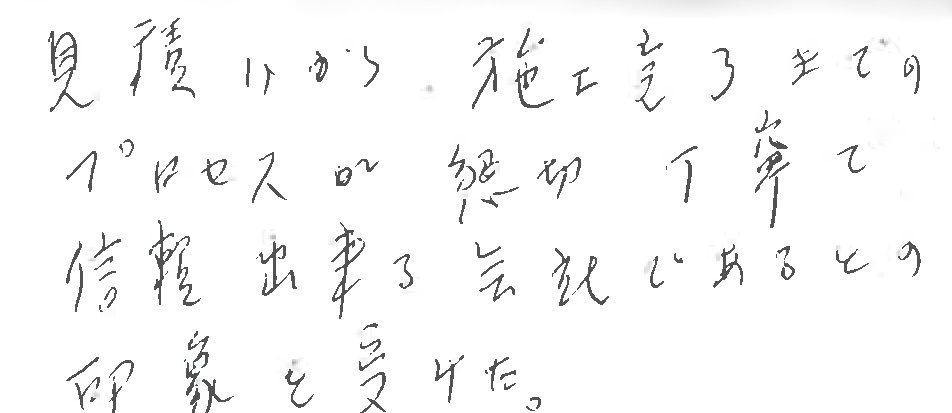 見積りから施工完了までの
プロセスが懇切丁寧で
信頼出来る会社であるとの
印象を受けた。